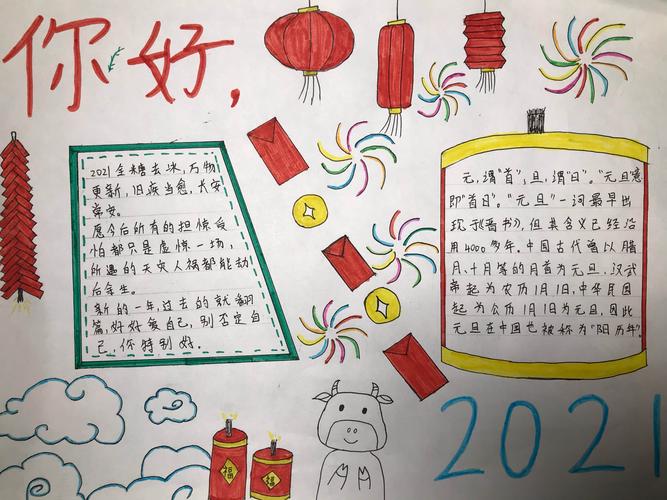 你好，
2021 金糖去冰，万物
更新，旧疾当愈，长安
常安。
愿今后所有的担惊受
怕都只是虚惊一场，
所遇的天灾人祸都能劫
后余生。
新的一年，过去的就翻
篇，好好爱自己，别否定自
己，你特别好。
元，谓“首”，旦，谓“日”。“元旦意
即“首日”。“元旦”一词最早出
现于《晋书》，但其含义已经沿
用4000多年。中国古代曾以腊
月、十月等的月首为元旦，汉武
帝起为农历1月1日，中华民国
起为公历1月1日为元旦，因此
元旦在中国也被称为“阳历年”。
福
福
2021